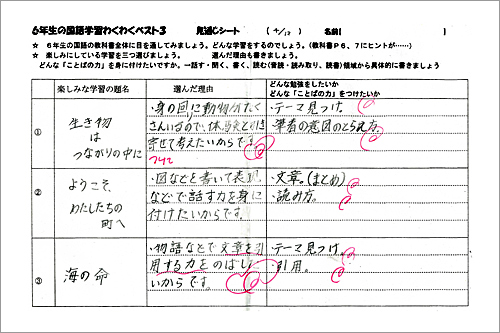 6年生の国語学習わくわくベスト3 見通しシート ( 4/12 ) 名前( )
☆ 6年生の国語の教科書全体に目を通してみましょう。どんな学習をするのでしょう。(教科書P6、7にヒントが……)
☆ 楽しみにしている学習を三つ選びましょう。 選んだ理由も書きましょう。
どんな「ことばの力」を身に付けたいですか。―話す・聞く、書く、読む(音読・読み取り、読書)領域から具体的に書きましょう
楽しみな学習の題名
選んだ理由
どんな勉強をしたいか
どんな「ことばの力」をつけたいか
①
生き物
は
つながりの中に
・身の回に動物がたく
さんいるので、
寄せて考えたいからです。
つけて
・テーマ見つけ。
・筆者の意図のとらえ方。
②
ようこそ、
わたしたちの
町へ
・図などを書いて表現
などで話す力を身に
付けたいからです。
・文章。(まとめ)
・読み方。
③
海の命
・物語などで文章を引
用する力をのばし
いからです。
・テーマ見つけ。
・引用。